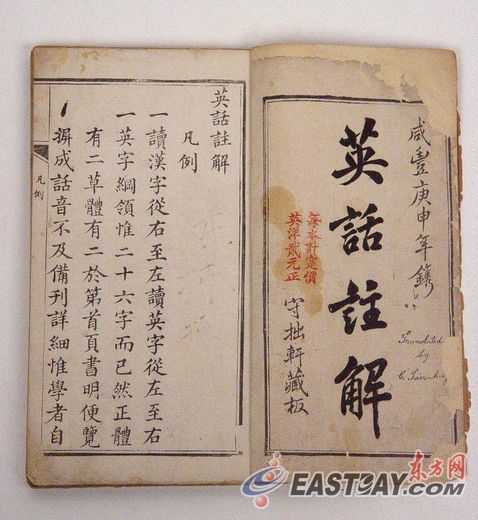 咸豐庚申年鐫
英話註解
Translated
by
每本計定價
英洋貳元正
守拙軒藏板
英話註解
凡例
一讀漢字從右至左讀英字從左至右
一英字綱領惟二十六字而已然正體
有二草體有二於第首頁書明便覽
成話音不及備刊詳細惟學者自
凡例
东方网
EASTDAY.COM